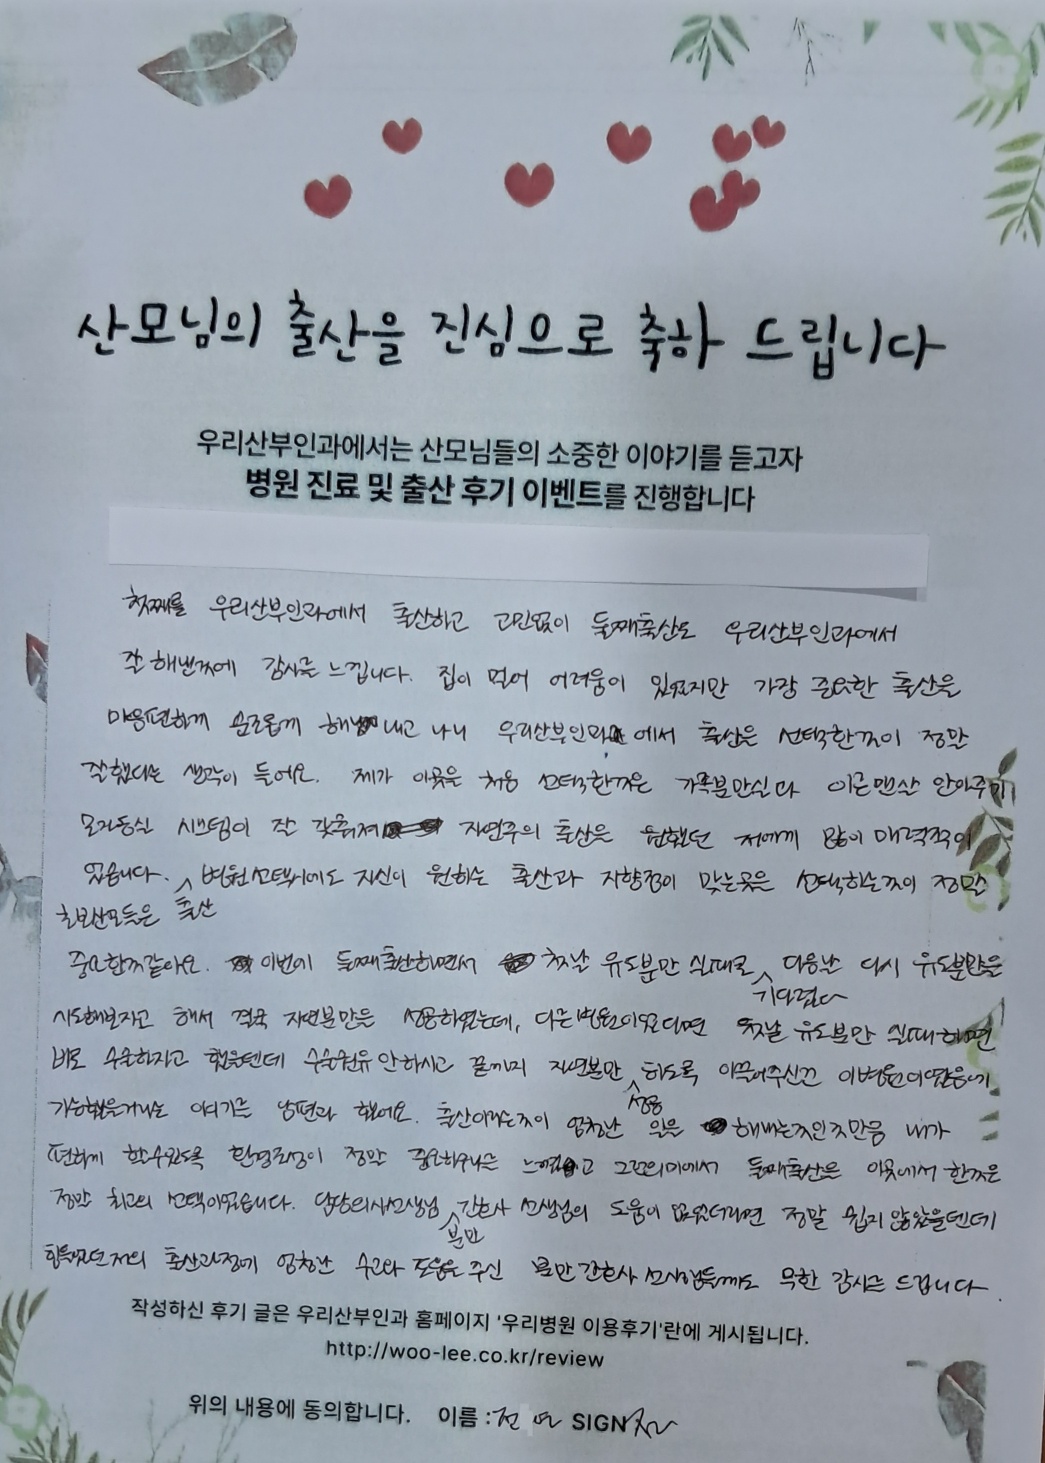 산모님의 출산을 진심으로 축하 드립니다
우리산부인과에서는 산모님들의 소중한 이야기를 듣고자
병원 진료 및 출산 후기 이벤트를 진행합니다
첫째를 우리산부인과에서 출산하고 고민없이 둘째출산도 우리산부인과에서
잘 해낸것에 감사를 느낍니다. 집이 멀어 어려움이 있었지만 가장 중요한 출산을
마음편하게 순조롭게 해내고 나니 우리산부인과에서 출산은 선택한것이 정말
잘했다는 생각이 들어요. 제가 이곳을 처음 선택한것은 가족분만실과 이른맨살 안아주기
모자동실 시스템이 잘 갖춰져 자연주의 출산을 원했던 저에게 많이 매력적이
었습니다. 병원선택시에도 자신이 원하는 출산과 지향점이 맞는곳을 선택하는것이 정말
초보산모들은 출산
중요한것같아요. 이번에 둘째출산하면서 첫날 유도분만 실패로 다음날 다시 유도분만을
기다렸다
시도해보자고 해서 결국 자연분만을 성공하였는데, 다른병원이었다면 첫날 유도분만 실패하면
바로 수술하자고 했을텐데 수술권유 안하시고 끝까지 자연분만 하도록 이끌어주신건 이병원이었음에
성공
가능했을거라는 이야기를 남편과 했어요. 출산이라는것이 엄청난 일을 해내는것인것만큼 내가
편하게 할수있도록 환경조성이 정말 중요하구나를 느꼈고 그런의미에서 둘째출산을 이곳에서 한것은
정말 최고의 선택이었습니다. 담당의사선생님 간호사 선생님의 도움이 없었더라면 정말 쉽지 않았을텐데
분만
힘들었던 저의 출산과정에 엄청난 수고와 도움을 주신 분만 간호사 선생님들께도 무한 감사를 드립니다.
작성하신 후기 글은 우리산부인과 홈페이지 '우리병원 이용후기'란에 게시됩니다.
http://woo-lee.co.kr/review
위의 내용에 동의합니다. 이름 : 전 SIGN